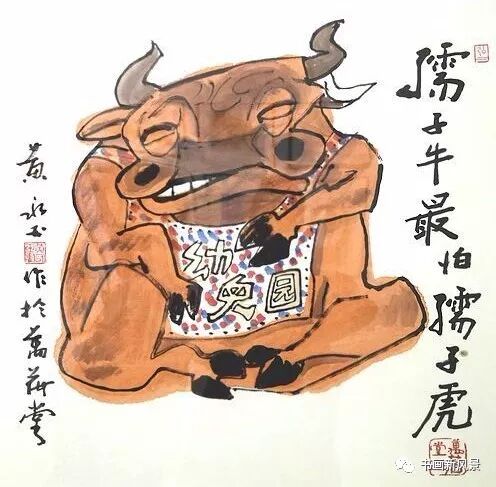 孺子牛最怕孺子虎
幼兒园
黄永玉
作於萬荷堂
书画新风景